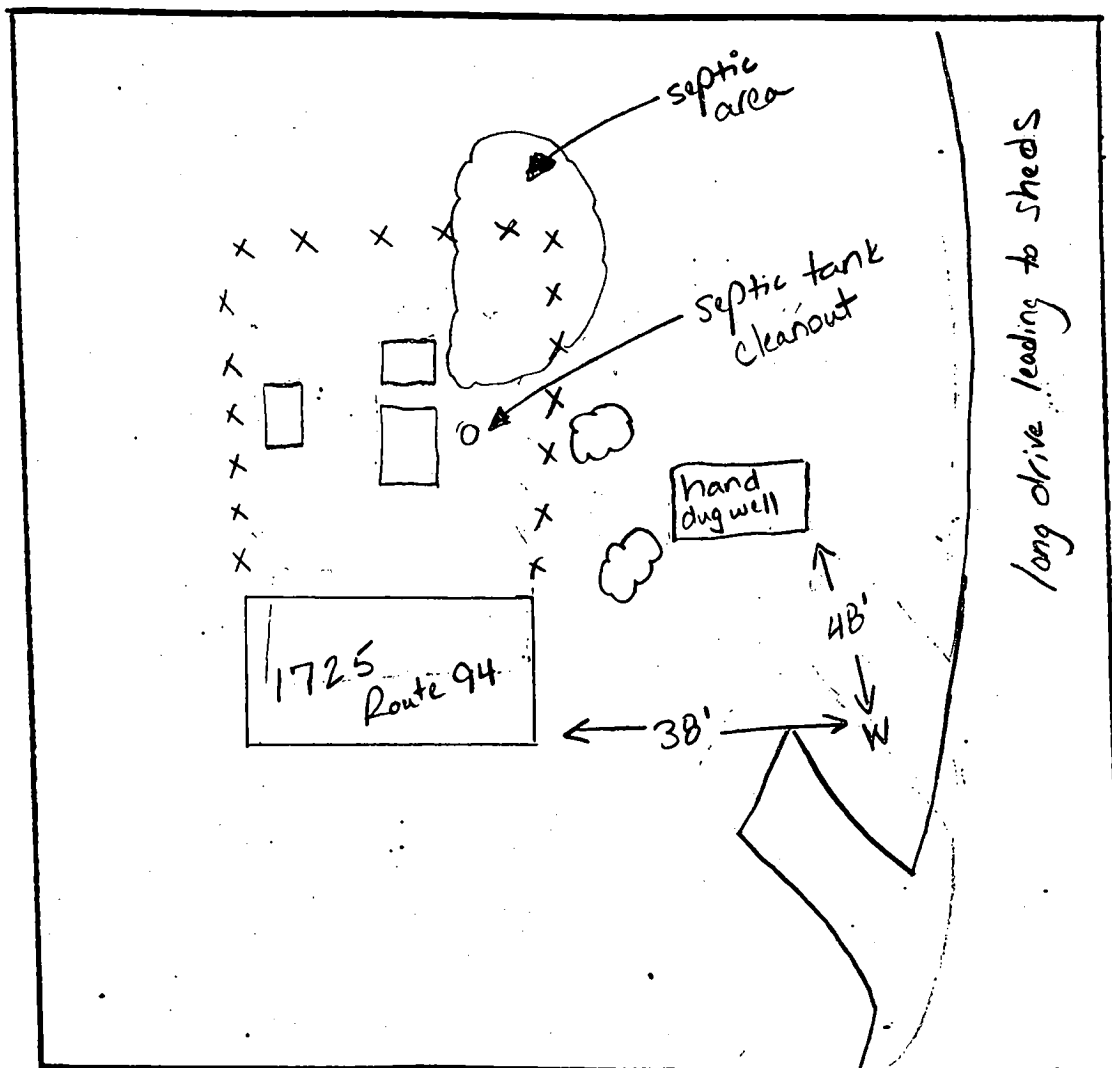 septic
area
septic tank
cleanout
long drive leading to sheds
hand
dug well
48'
1725
Route 94
38'
W